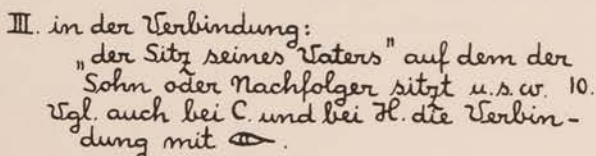 III. in der Verbindung:
„der Sitz seines Vaters" auf dem der
Sohn oder Nachfolger sitzt u.s.w. 10.
Vgl. auch bei C. und bei H. die Verbin-
dung mit 𓂋.